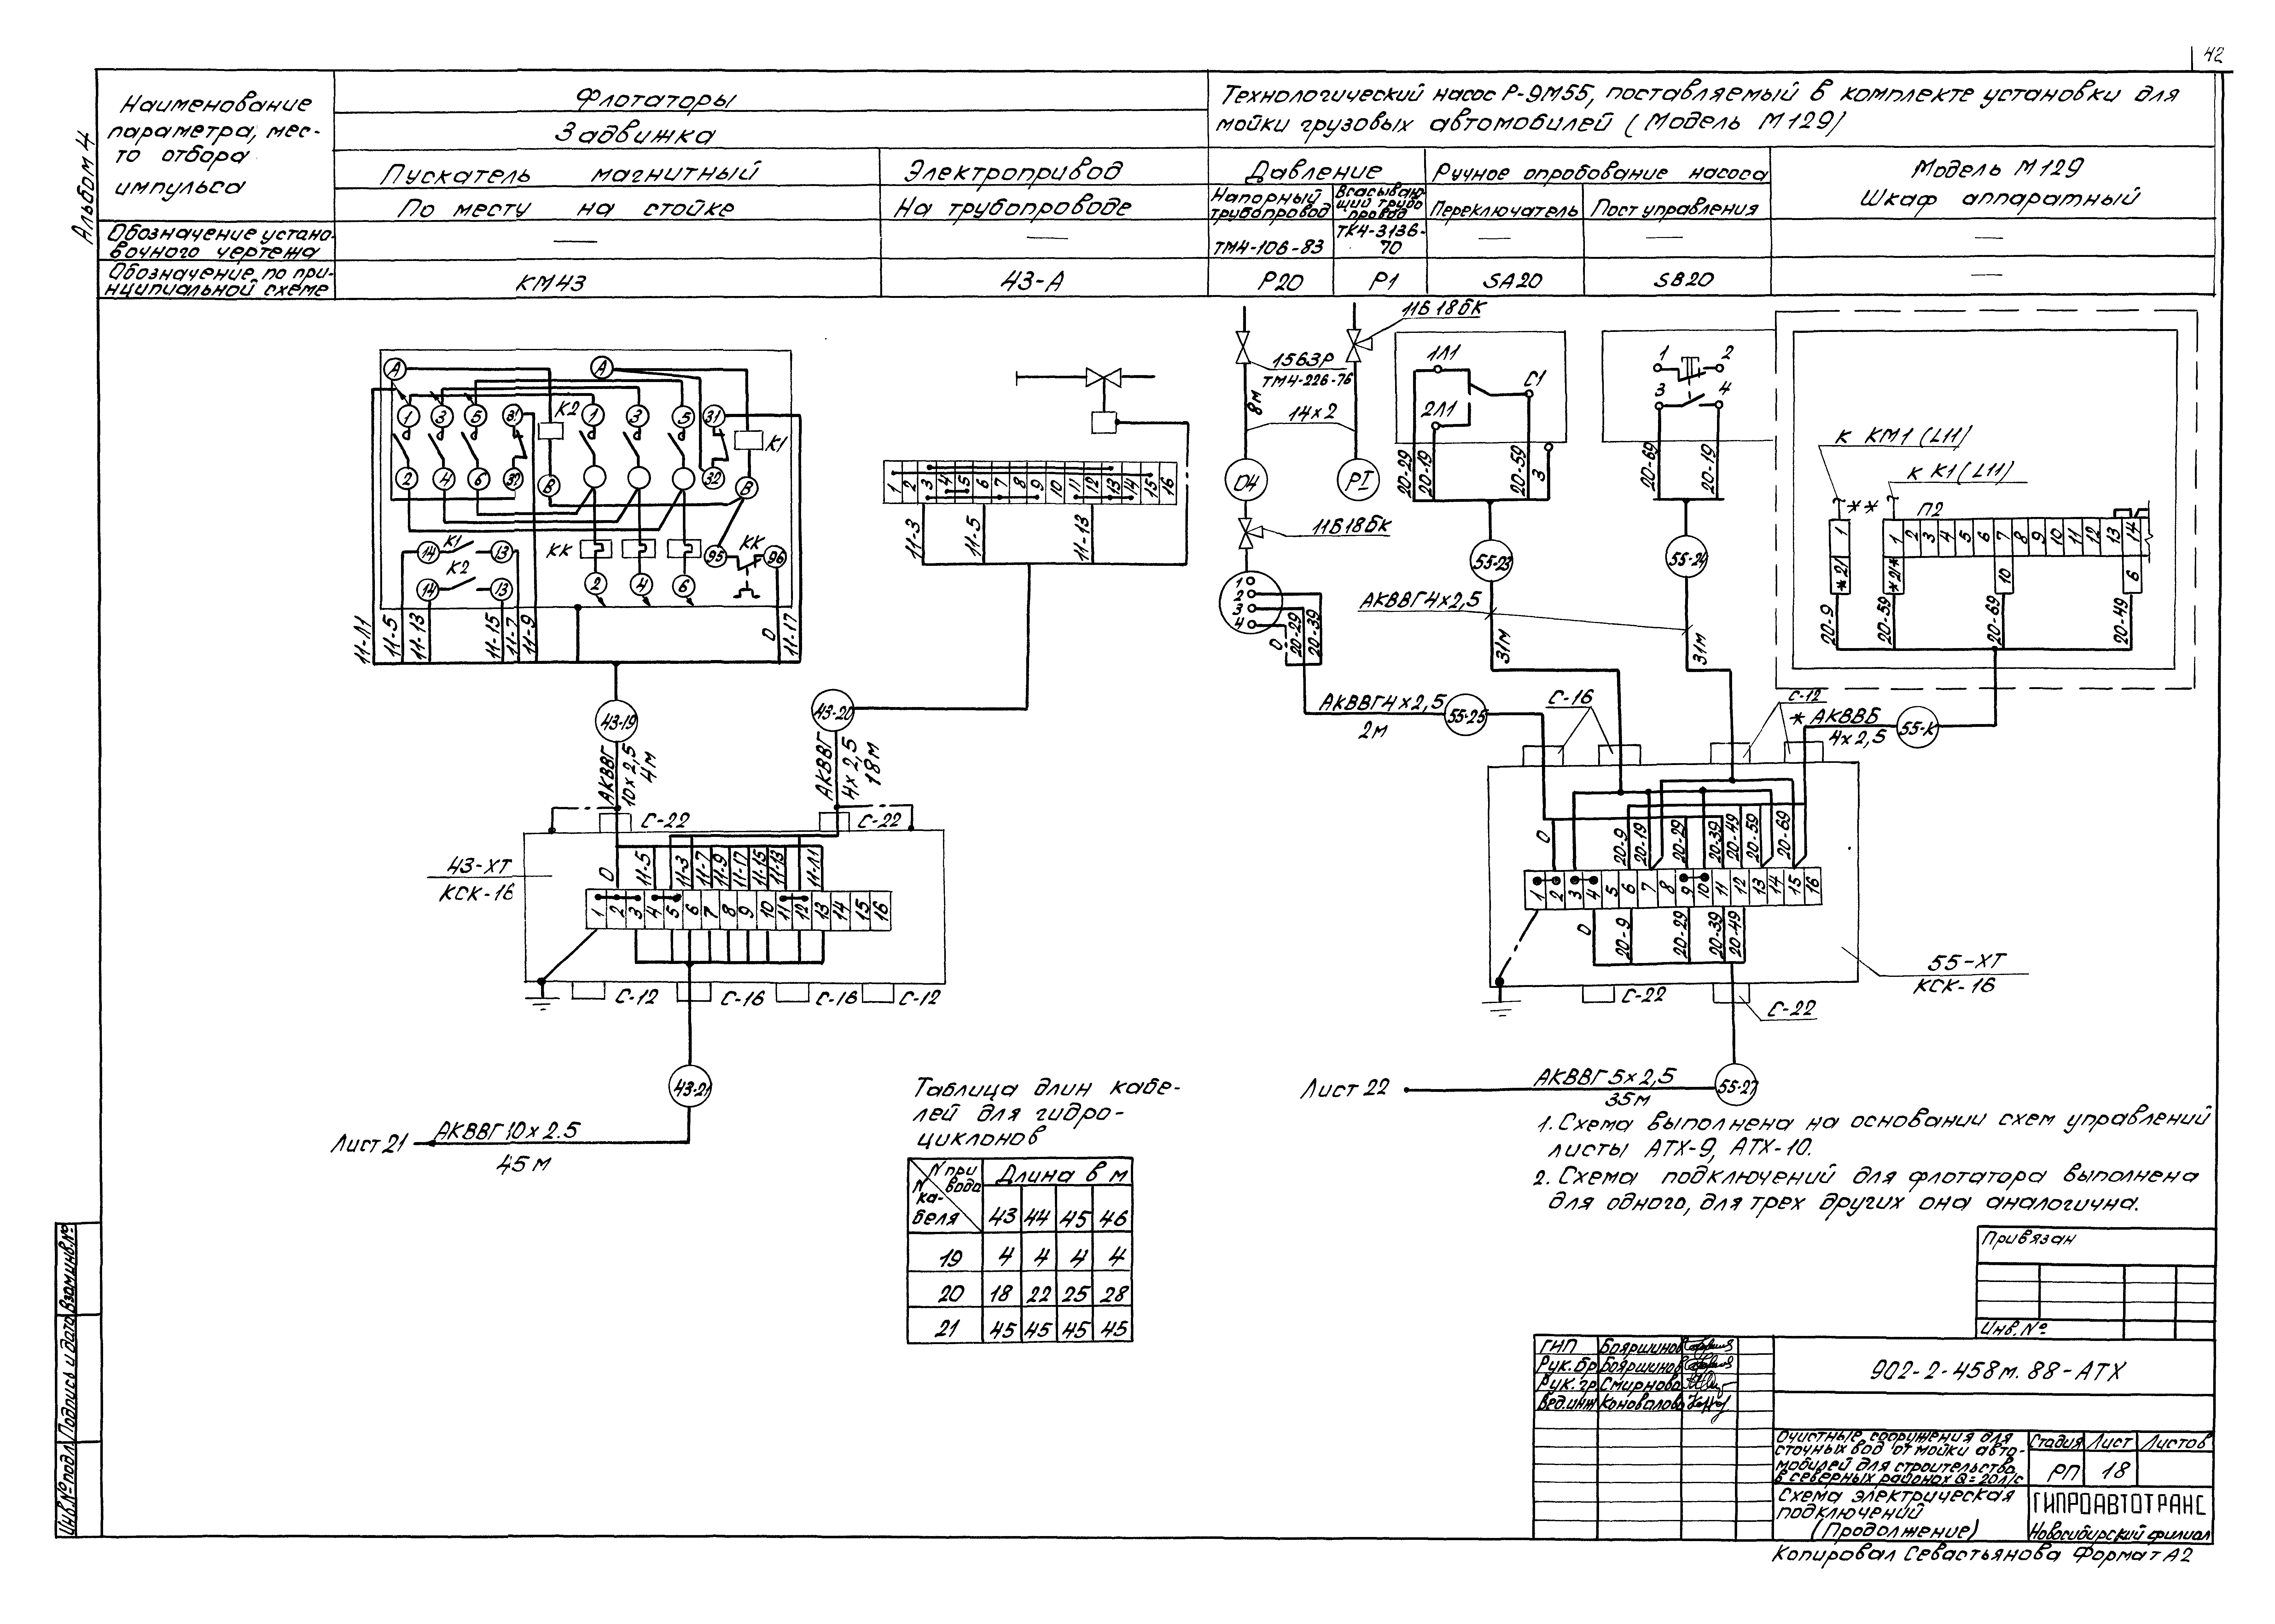 42
Альбом 4
Наименование
параметра, мес-
то отбора
импульса
Флотаторы
Задвижка
Пускатель магнитный
По месту на стойке
Электропривод
На трубопроводе
Технологический насос Р-9М55, поставляемый в комплекте установки для
мойки грузовых автомобилей (Модель М129)
Давление
Напорный
трубопровод
Всасываю-
щий трубо
провод
Ручное опробование насоса
Переключатель
Пост управления
Модель М129
Шкаф аппаратный
Обозначение устано-
вочного чертежа
—
—
ТМ4-106-83
ТК4-3136-
70
—
—
—
Обозначение по при-
нципиальной схеме
КМ43
43-А
Р20
Р1
SA20
SB20
—
А
А
1
3
5
31
К2
1
3
5
31
К1
2
4
6
32
В
32
В
К1
14
13
К2
14
13
КК
2
4
6
95
КК
96
11-Л1
11-5
11-13
11-15
11-7
11-9
0
11-17
43-19
АКВВГ
10х2,5
4м
43-20
АКВВГ
4х2,5
18м
1 2 3 4 5 6 7 8 9 10 11 12 13 14 15 16
11-3
11-5
11-13
С-22
С-22
43-ХТ
КСК-16
0
11-5
11-3
11-7
11-9
11-17
11-15
11-13
11-Л1
1 2 3 4 5 6 7 8 9 10 11 12 13 14 15 16
С-12
С-16
С-16
С-12
43-21
Лист 21
АКВВГ10х2.5
45м
11Б18бК
15б3Р
ТМ4-226-76
8м
14х2
04
PI
11Б18бК
1
2
3
4
0
20-29
20-39
АКВВГ4х2,5
2м
55-25
1Л1
2Л1
С1
20-29
20-19
20-59
3
55-23
АКВВГ4х2,5
31м
1
2
3
4
20-69
20-19
55-24
31м
к КМ1 (L11)
к К1 (L11)
**
П2
1
1 2 3 4 5 6 7 8 9 10 11 12 13 14
*21
*21*
10
6
20-9
20-59
20-69
20-49
С-16
С-12
*АКВВБ
4х2,5
55-К
0
20-9
20-19
20-29
20-39
20-49
20-59
20-69
1 2 3 4 5 6 7 8 9 10 11 12 13 14 15 16
0
20-9
20-29
20-39
20-49
55-ХТ
КСК-16
С-22
С-22
Лист 22
АКВВГ5х2,5
35м
55-27
Таблица длин кабе-
лей для гидро-
циклонов
N при
вода
N
ка-
беля
Длина в м
43 44 45 46
19 4 4 4 4
20 18 22 25 28
21 45 45 45 45
1. Схема выполнена на основании схем управлений
листы АТХ-9, АТХ-10.
2. Схема подключений для флотатора выполнена
для одного, для трех других она аналогична.
Привязан
Инв.№
ГИП Бояршинов
Рук.бр Бояршинов
Рук.гр Смирнова
Вед.инж Коновалова
902-2-458м.88-АТХ
Очистные сооружения для
сточных вод от мойки авто-
мобилей для строительства
в северных районах Q=20л/с
Стадия Лист Листов
РП 18
Схема электрическая
подключений
(Продолжение)
ГИПРОАВТОТРАНС
Новосибирский филиал
Копировал Севастьянова Формат А2
Инв.№подл. Подпись и дата Взам.инв.№